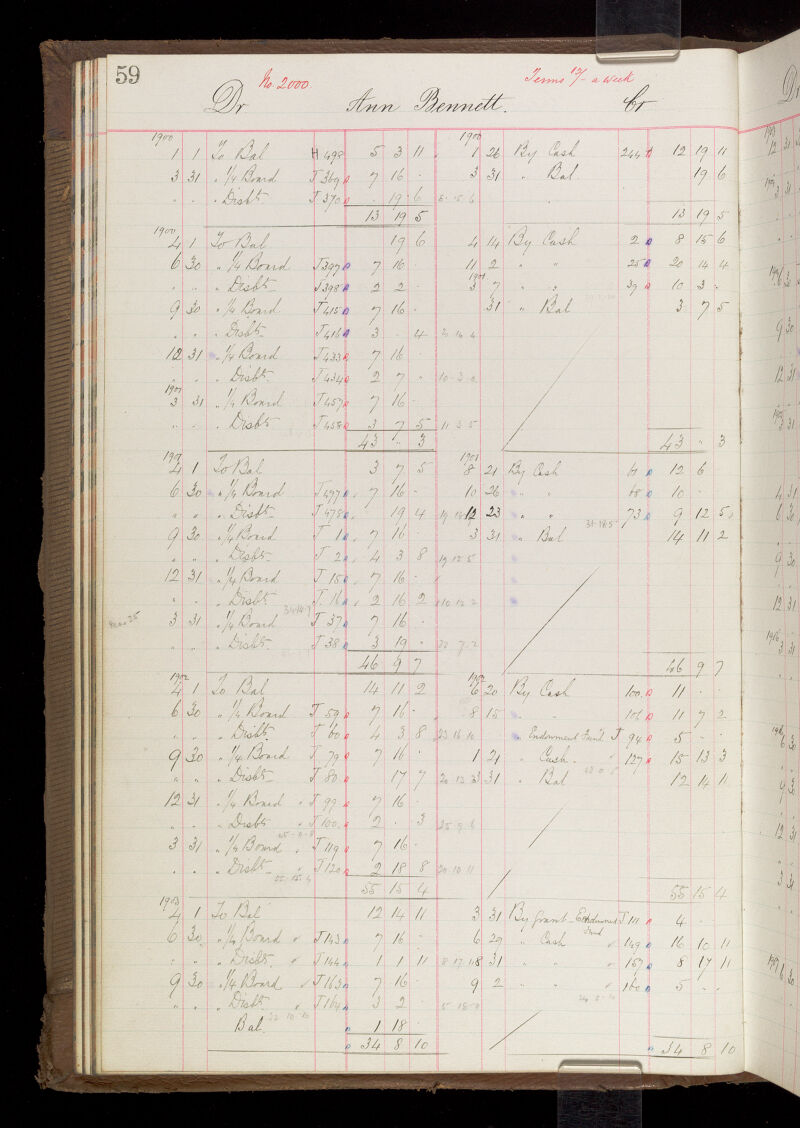 59
No. 2000
Terms 12/- a week
Dr Ann Bennett. Cr
1900 1900
1 1 To Bal H 498 5 3 11 1 26 By Cash 244 12 19 11
3 31 " 1/4 Board J 369 7 16 - 3 31 " Bal 19 6
" " " Disbts J 370 - 19 6
13 19 5 13 19 5
1900
4 1 To Bal 19 6 4 14 By Cash 2 8 15 6
6 30 " 1/4 Board J 397 7 16 - 11 2 " " 25 20 14 4
" " " Disbts J 398 2 2 - 1901 3 7 " " 37 10 3 "
9 30 " 1/4 Board J 415 7 16 - 31 " Bal 3 7 5
" " " Disbts J 416 3 - 4
12 31 " 1/4 Board J 433 7 16 -
" " " Disbts J 434 2 7 " 10-3-0
1901
3 31 " 1/4 Board J 457 7 16 -
" " " Disbts J 458 3 7 5 11 3 5
43 " 3 43 " 3
1901 1901
4 1 To Bal 3 7 5 8 21 By Cash 61 12 6
6 30 " 1/4 Board J 477 7 16 - 10 26 " " 68 10 -
" " " Disbts J 478 - 19 4 12 23 " " 73 9 12 5
9 30 " 1/4 Board J 1 7 16 - 3 31 " Bal 31-18-5 14 11 2
" " " Disbts J 2 4 3 8 19 12 5
12 31 " 1/4 Board J 15 7 16 -
" " " Disbts J 16 2 16 2 10 12 2
3 31 " 1/4 Board J 37 7 16 -
" " " Disbts J 38 3 19 - 22 7 2
46 9 7 46 9 7
1902 1902
4 1 To Bal 14 11 2 6 20 By Cash 100 11 - -
6 30 " 1/4 Board J 59 7 16 - 8 15 " " 106 11 7 2
" " " Disbts J 60 4 3 8 23 16 10 " Endowment Fund J 94 5 - -
9 30 " 1/4 Board J 79 7 16 - 1 21 " Cash " 127 15 13 3
" " " Disbts J 80 17 7 20 13 3 31 " Bal 12 14 11
12 31 " 1/4 Board " J 99 7 16 -
" " " Disbts " J 100 2 - 3 25 9 6
3 31 " 1/4 Board " J 119 7 16 -
" " " Disbts " J 120 2 18 8 20 10 11
55 15 4 55 15 4
1903
4 1 To Bal 12 14 11 3 31 By Grant - Endowment Fund J 111 4 -
6 30 " 1/4 Board J 143 7 16 - 6 29 " Cash 149 16 10 11
" " " Disbts J 144 1 1 11 8 17 11 8 31 " " 157 8 17 11
9 30 " 1/4 Board J 163 7 16 - 9 2 " " 160 5 " "
" " " Disbts J 164 3 2 - 5-18-0
Bal. 1 18 -
34 8 10 34 8 10